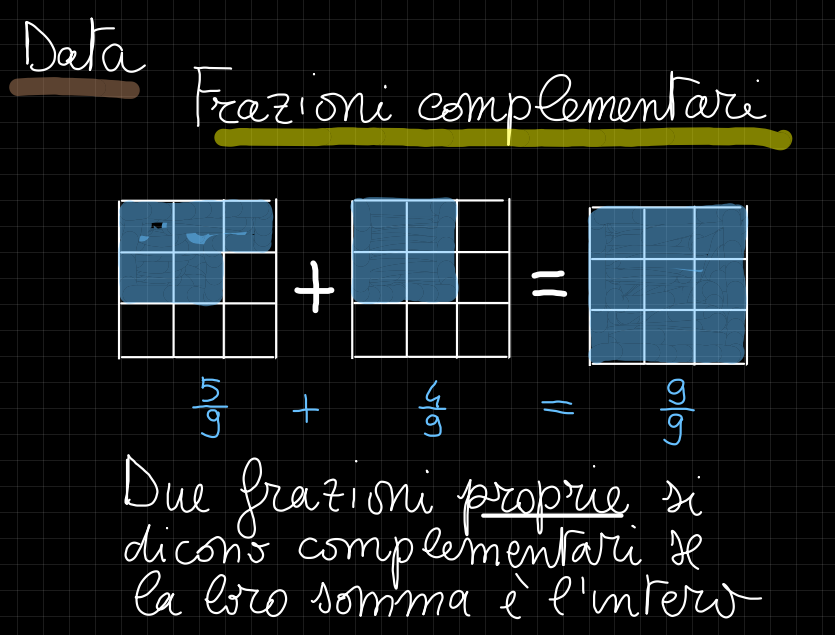 Data
Frazioni complementari
+ =
5/9 + 4/9 = 9/9
Due frazioni proprie si
dicono complementari se
la loro somma è l'intero